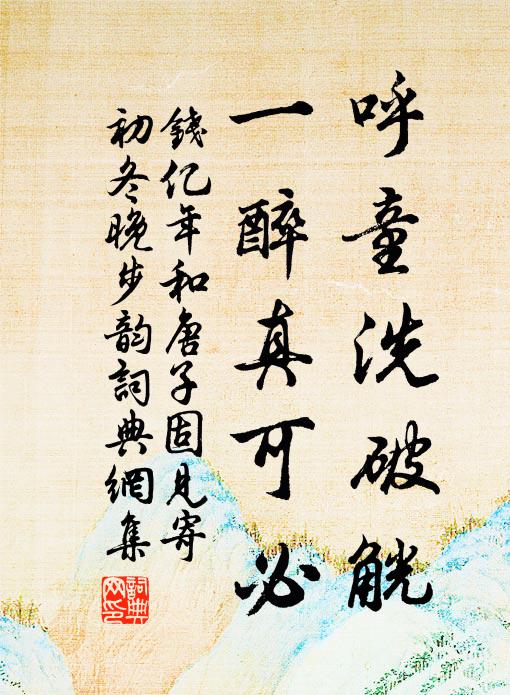 呼童洗破觥
一醉真可必
錢亿年和唐子固見寄
初冬晚步韵詞典網集
詞典网印